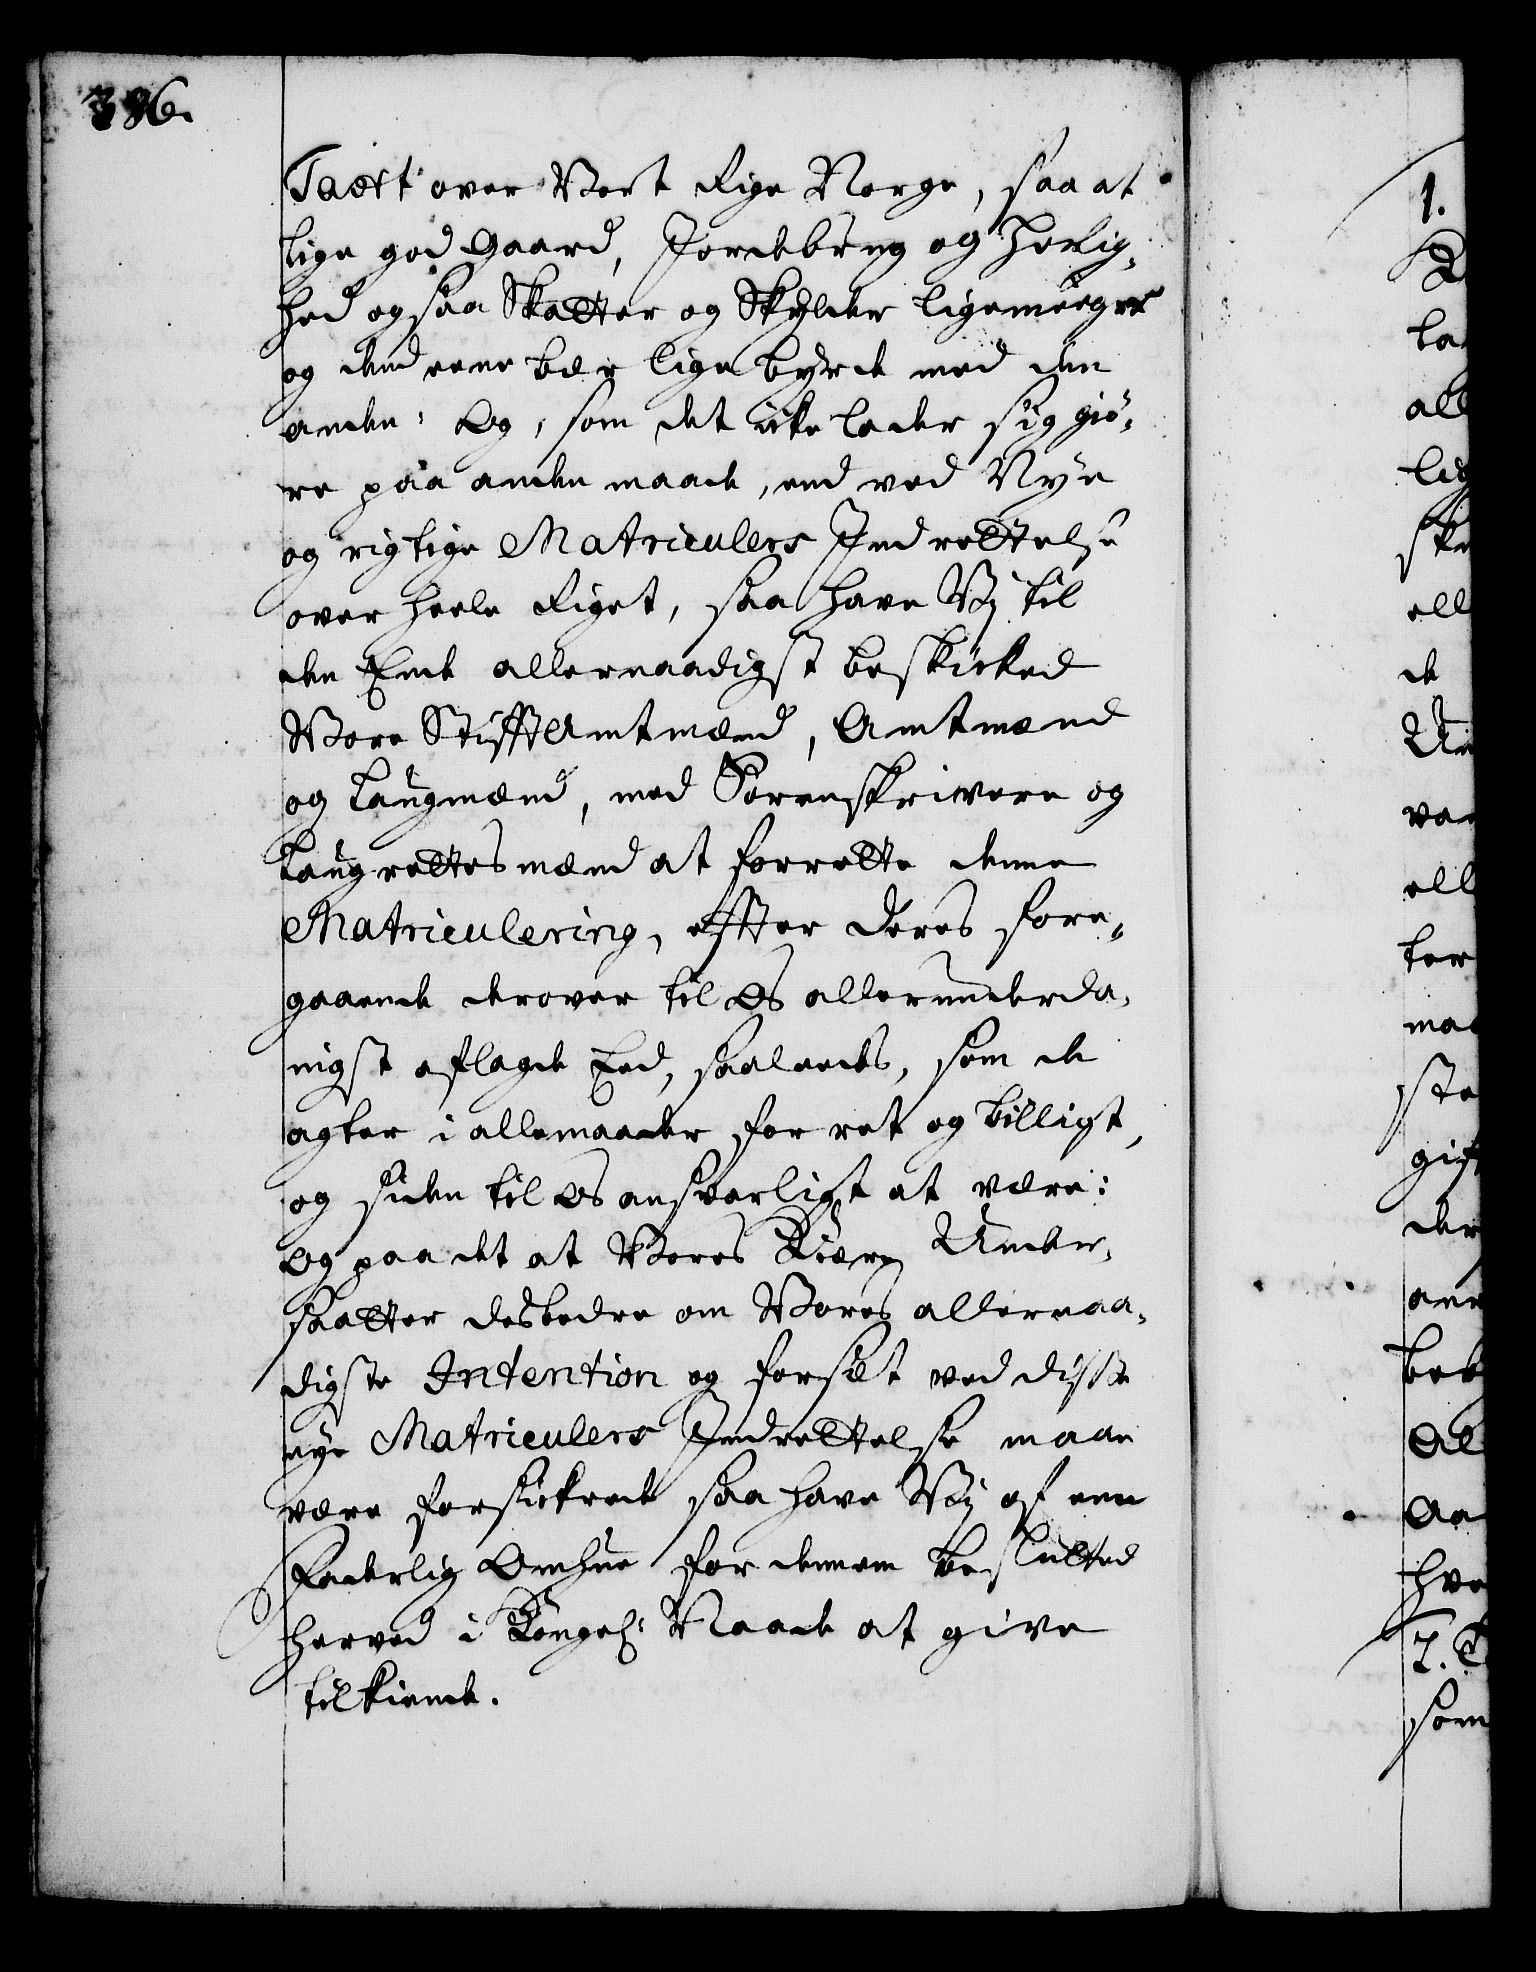 386.
Taxt over Vort Rige Norge, saa at
lige god Gaard, Jordebrug og Herlig-
hed ogsaa Skatter og Skylder ligemeeget
og dend eene bær lige byrde med den
anden: Og, som det icke lader sig giö-
re paa anden maade, end ved Nye
og rigtige Matriculers Indrettelse
over heele Riget, saa have Vj til
den Ende allernaadigst beskicked
Vore StifftAmtmænd, Amtmænd
og Laugmænd, med Sorenskrivere og
Laugrettesmænd at forrette denne
Matriculering, effter deres fore-
gaaende derover til Os allerunderda-
nigst aflagde Eed, saaleedes, som de
agter i allemaader for ret og billigt,
og siden til Os ansvarligt at være:
Og paa det at Vores Kiære Under-
saatter desbedre om Vores allernaa-
digste Intention og forsæt ved disse
nye Matriculers Indrettelse maae
være forsickrede saa have Vj af een
Faderlig Omhue for dennem beslutted
herved i Kongel: Naade at give
tilkiende.
1.
la
all
lig
ske
ell
de
Un
ell
ter
maa
ste
gif
der
Al
Aa
hve
2.
som